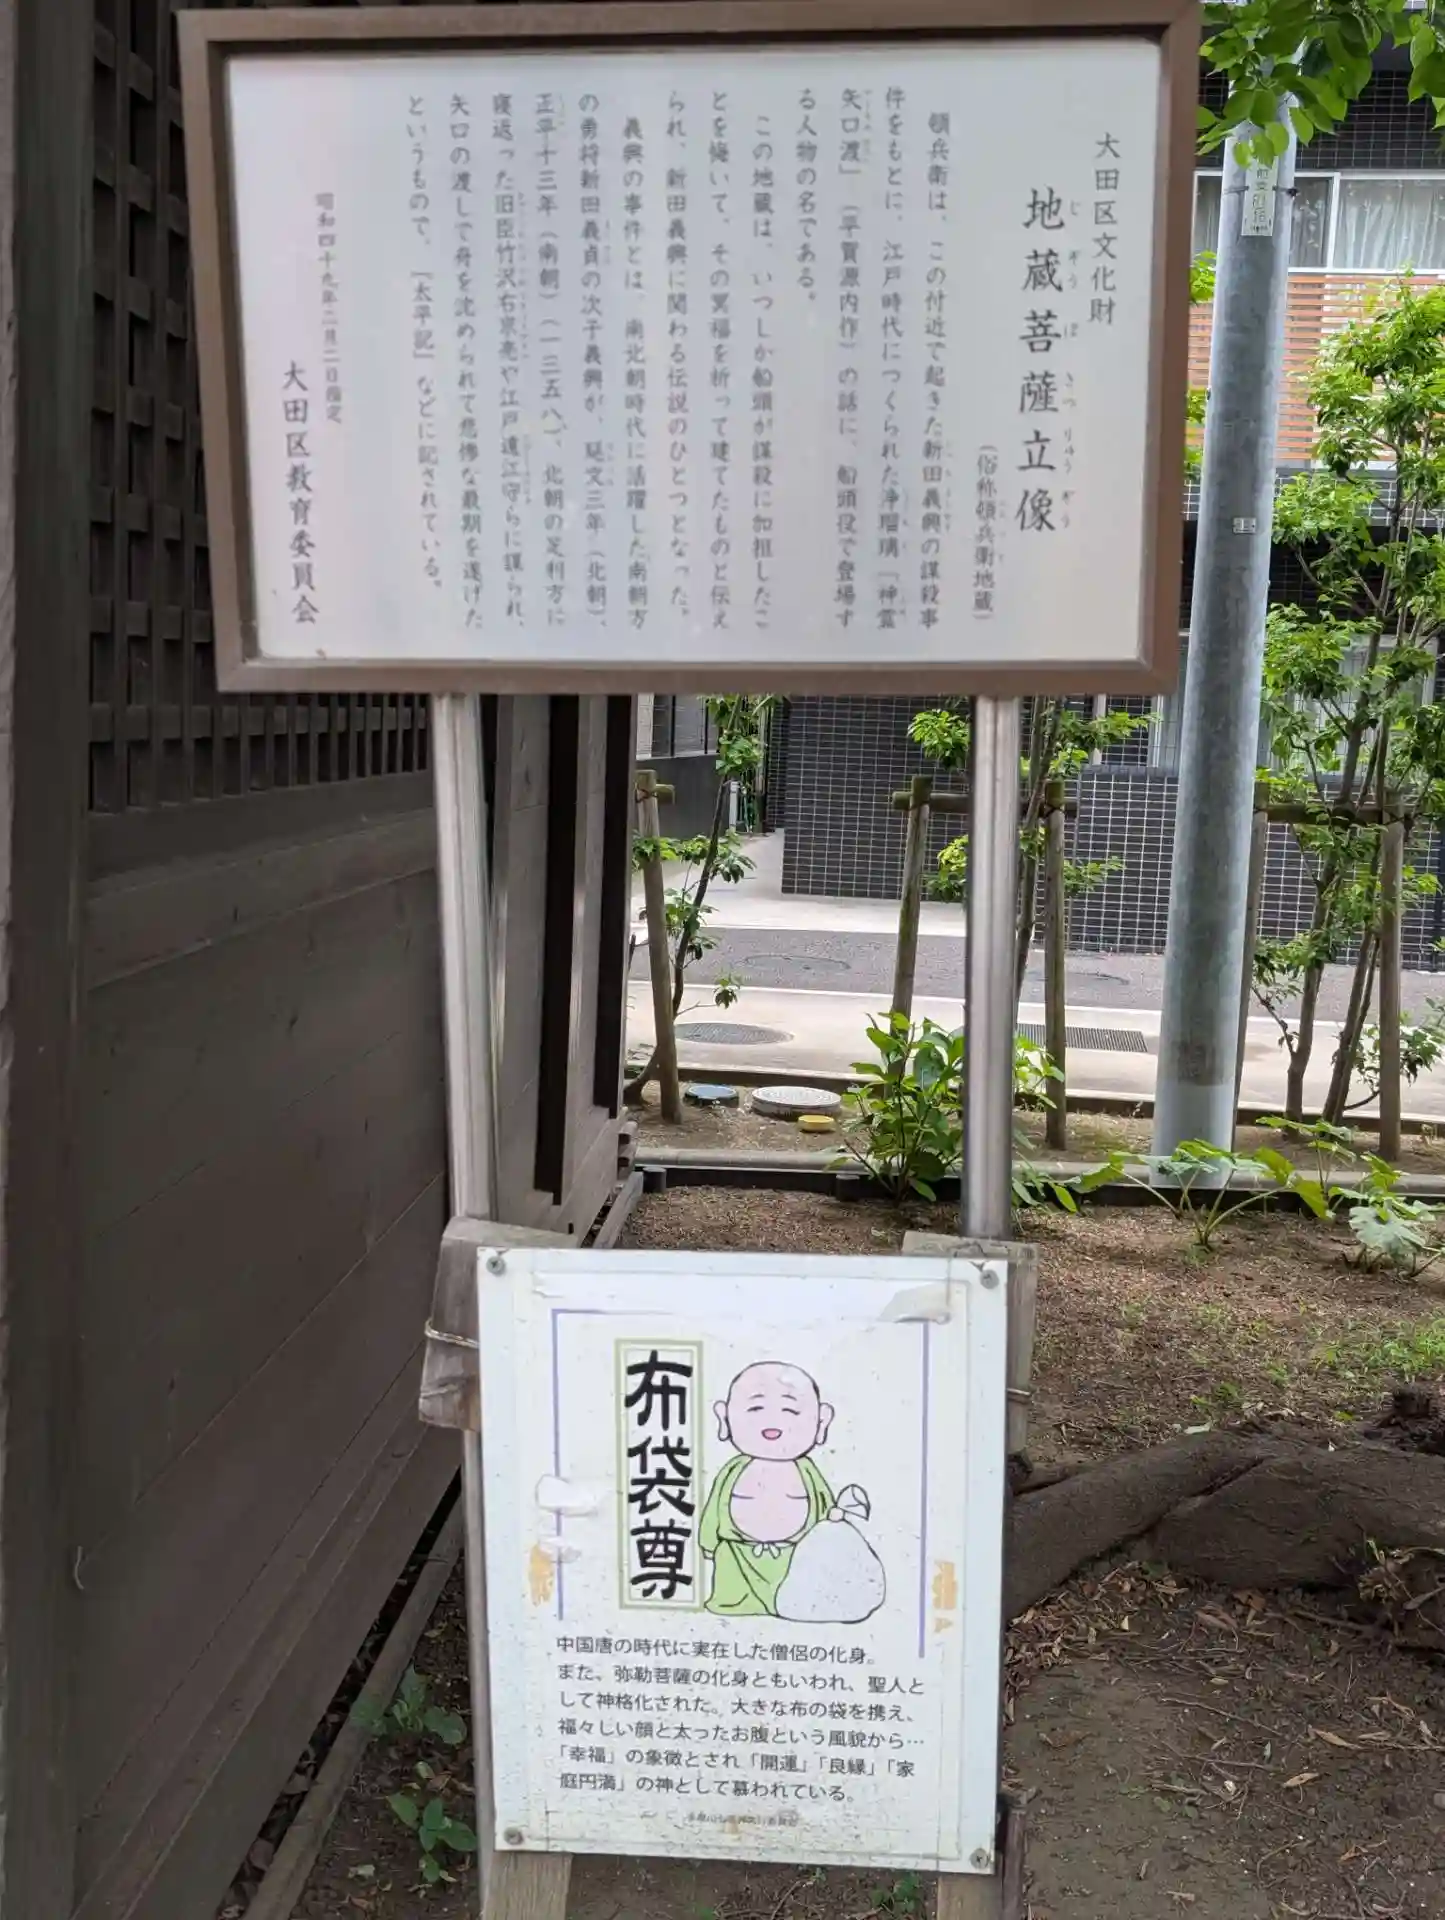 大田区文化財
地蔵菩薩立像
じぞうぼさつりゅうぞう
（俗称頓兵衛地蔵）
頓兵衛は、この付近で起きた新田義興の謀殺事
件をもとに、江戸時代につくられた浄瑠璃「神霊
矢口渡」（平賀源内作）の話に、船頭役で登場す
る人物の名である。
この地蔵は、いつしか船頭が謀殺に加担したこ
とを悔いて、その冥福を祈って建てたものと伝え
られ、新田義興に関わる伝説のひとつとなった。
義興の事件とは、南北朝時代に活躍した南朝方
の勇将新田義貞の次子義興が、延文三年（北朝）、
正平十三年（南朝）（一三五八）、北朝の足利方に
寝返った旧臣竹沢右京亮や江戸遠江守らに謀られ、
矢口の渡しで舟を沈められて悲惨な最期を遂げた
というもので、『太平記』などに記されている。
昭和四十九年二月二日指定
大田区教育委員会
布袋尊
中国唐の時代に実在した僧侶の化身。
また、弥勒菩薩の化身ともいわれ、聖人と
して神格化された。大きな布の袋を携え、
福々しい顔と太ったお腹という風貌から…
「幸福」の象徴とされ「開運」「良縁」「家
庭円満」の神として慕われている。